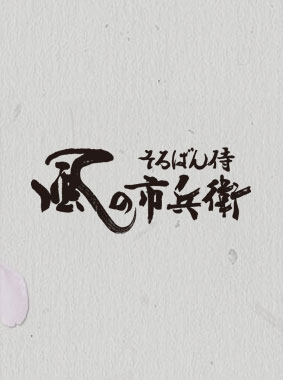 そろばん侍
風の市兵衛